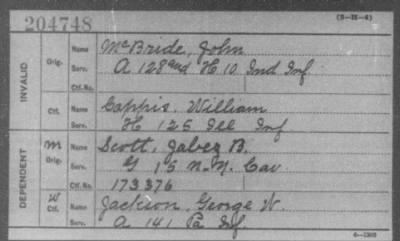 204748
(5-25-6)
INVALID
Orig.
Name McBride, John
Serv. A 128 and H 10 Ind Inf
Ctf. No.
Ctf.
Name Gappis, William
Serv. H 125 Ill Inf
DEPENDENT
M
Orig.
Name Scott, Jabez B.
Serv. G 15 N.Y. Cav
Ctf. No. 173376
W
Ctf.
Name Jackson, George W.
Serv. A 141 Pa Inf.